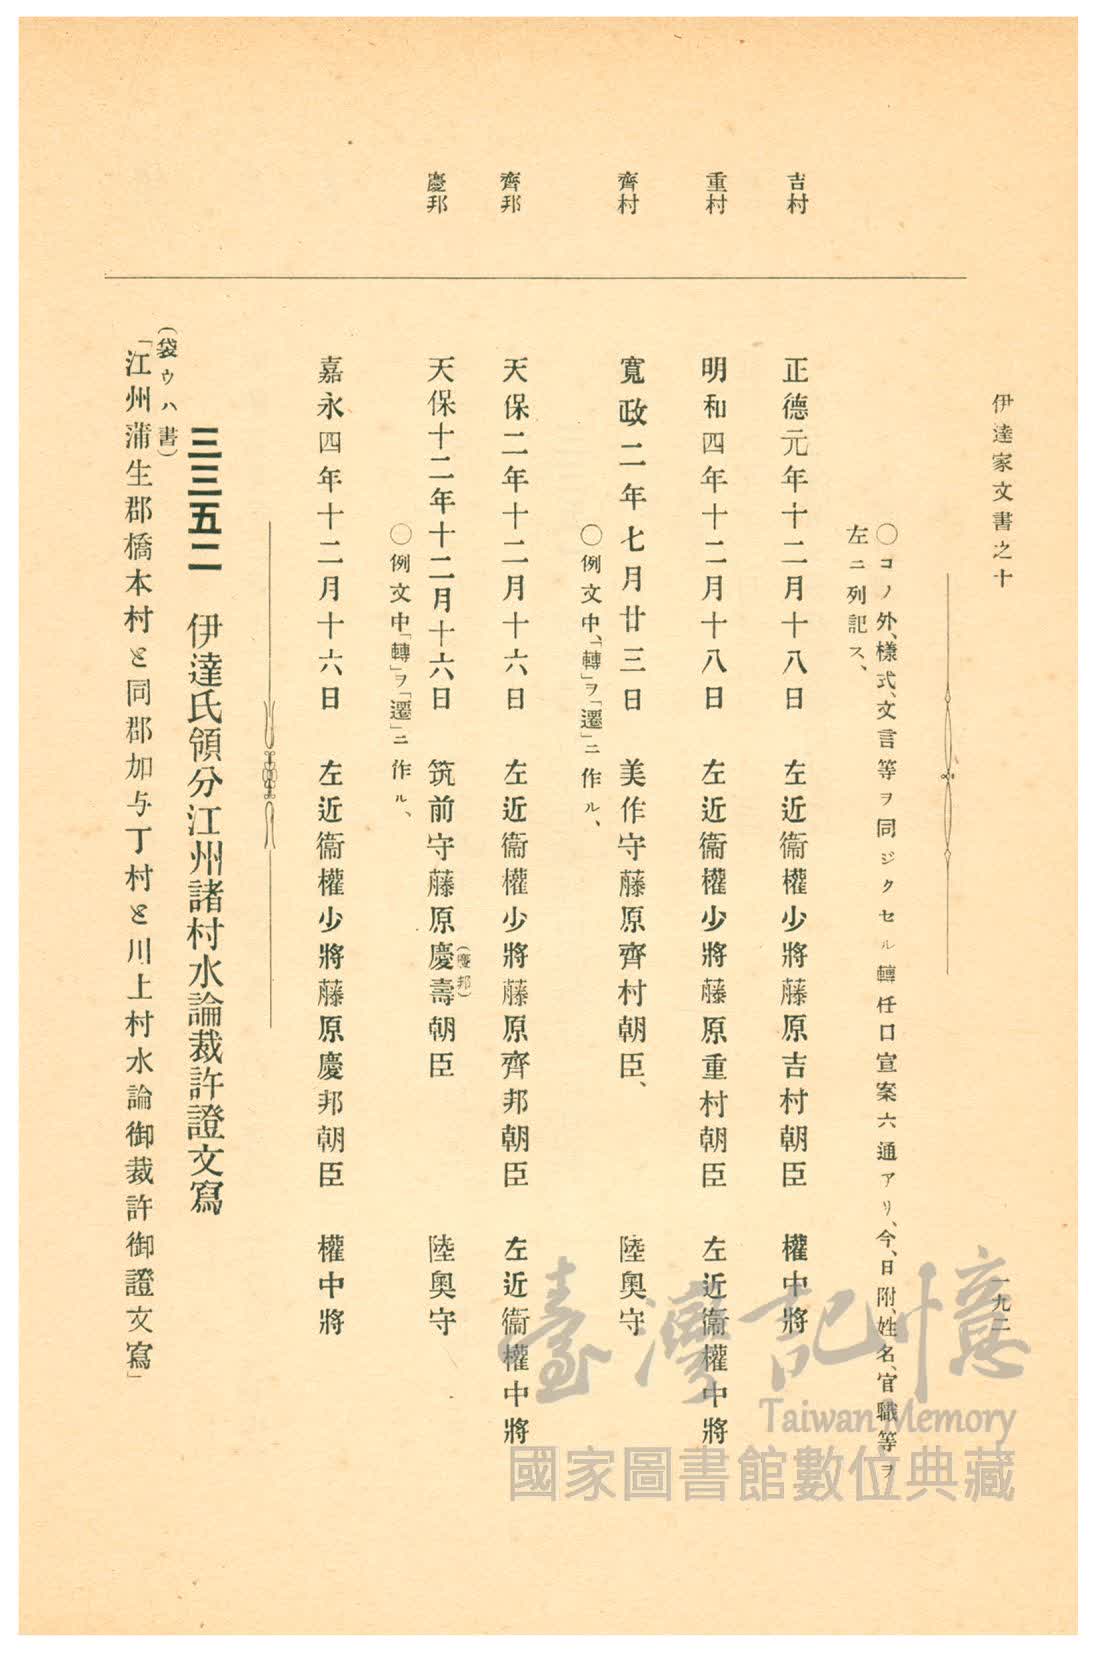 伊達家文書之十
一九二
○コノ外、樣式、文言等ヲ同ジクセル轉任口宣案六通アリ、今、日附、姓名、官職等ヲ
左ニ列記ス、
吉村
正德元年十二月十八日 左近衞權少將藤原吉村朝臣 權中將
重村
明和四年十二月十八日 左近衞權少將藤原重村朝臣 左近衞權中將
齊村
寬政二年七月廿三日 美作守藤原齊村朝臣、 陸奧守
○例文中、「轉」ヲ「遷」ニ作ル、
齊邦
天保二年十二月十六日 左近衞權少將藤原齊邦朝臣 左近衞權中將
慶邦
天保十二年十二月十六日 筑前守藤原慶壽朝臣 陸奧守
(慶邦)
○例文中「轉」ヲ「遷」ニ作ル、
嘉永四年十二月十六日 左近衞權少將藤原慶邦朝臣 權中將
三三五二 伊達氏領分江州諸村水論裁許證文寫
(袋ウハ書)
「江州蒲生郡橋本村と同郡加与丁村と川上村水論御裁許御證文寫」
臺灣記憶
Taiwan Memory
國家圖書館數位典藏